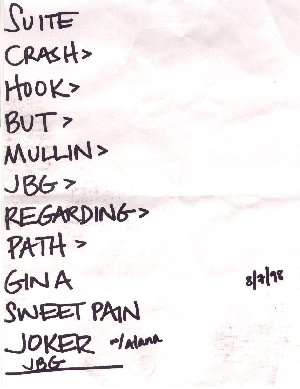 SUITE
CRASH>
HOOK>
BUT >
MULLIN>
JBG >
REGARDING>
PATH >
GINA 8/7/98
SWEET PAIN
JOKER w/alana
JBG